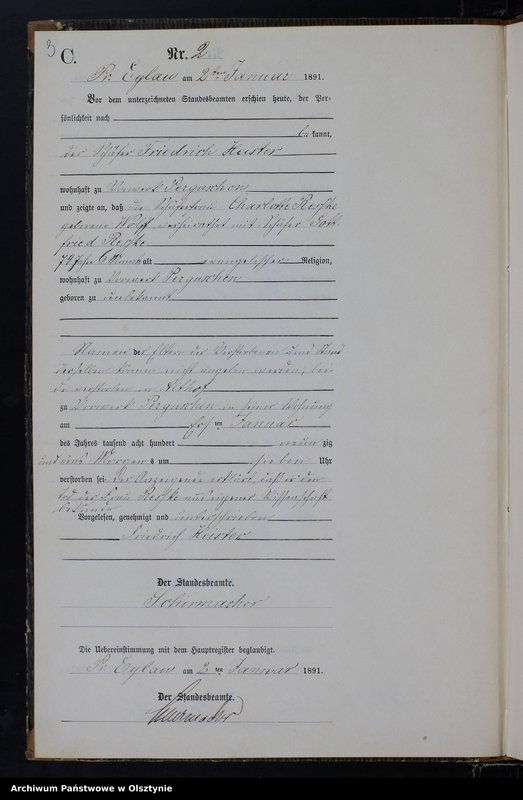 3
C.
Nr. 2
Pr. Eylau am 2ten Januar 1891.
Vor dem unterzeichneten Standesbeamten erschien heute, der Per-
sönlichkeit nach
be kannt,
der Schäfer Friedrich Heister
wohnhaft zu Vorwerk Perguschen
und zeigte an, daß die Schäferfrau Charlotte Reske
geborene Wolff verheirathet mit Schäfer Gott
fried Reske
79 Jahre 6 Monate alt evangelischer Religion,
wohnhaft zu Vorwerk Perguschen
geboren zu unbekannt
Namen der Eltern der Verstorbenen und Stand
derselben können nicht angeben werden, bei
de verstorben in Althof
zu Vorwerk Perguschen in seiner Wohnung
am ersten Januar
des Jahres tausend acht hundert neun zig
und eins Morgens um sieben Uhr
verstorben sei. Der Anzeigende erklärt, daß er den
Tod der Frau Reske aus eigener Wissenschaft
bekunde
Vorgelesen, genehmigt und unterschrieben
Friedrich Heister
Der Standesbeamte.
Schirmacher
Die Uebereinstimmung mit dem Hauptregister beglaubigt.
Pr. Eylau am 2ten Januar 1891.
Der Standesbeamte.
Schirmacher
Archiwum Państwowe w Olsztynie